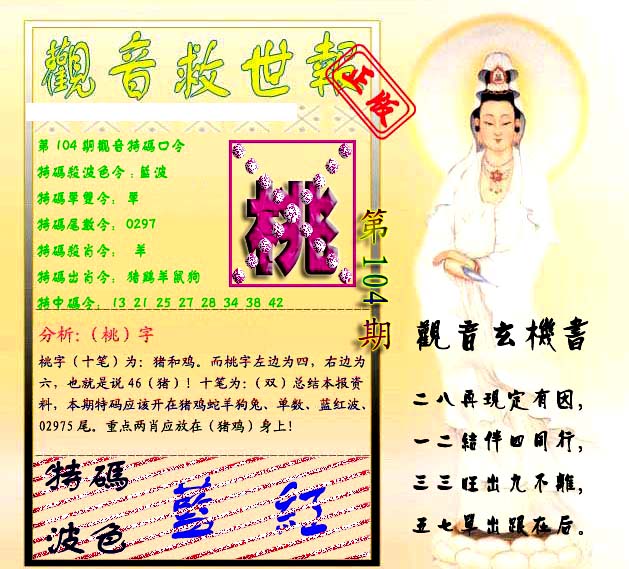 觀音救世報
正版
第104期觀音特碼口令
特碼殺波色令：藍波
特碼單雙令： 單
特碼尾數令： 0297
特碼殺肖令： 羊
特碼出肖令： 猪鷄羊鼠狗
特中碼令： 13 21 25 27 28 34 38 42
桃
第104期
分析:（桃）字
桃字（十笔）为：猪和鸡。而桃字左边为四，右边为
六，也就是说46（猪）！十笔为：（双）总结本报资
料，本期特码应该开在猪鸡蛇羊狗兔、单数、蓝红波、
02975尾。重点两肖应放在（猪鸡）身上！
特碼
波色
藍 紅
觀音玄機書
二八再現定有因，
一二結伴四同行，
三三旺出九不離，
五七單出跟在后。